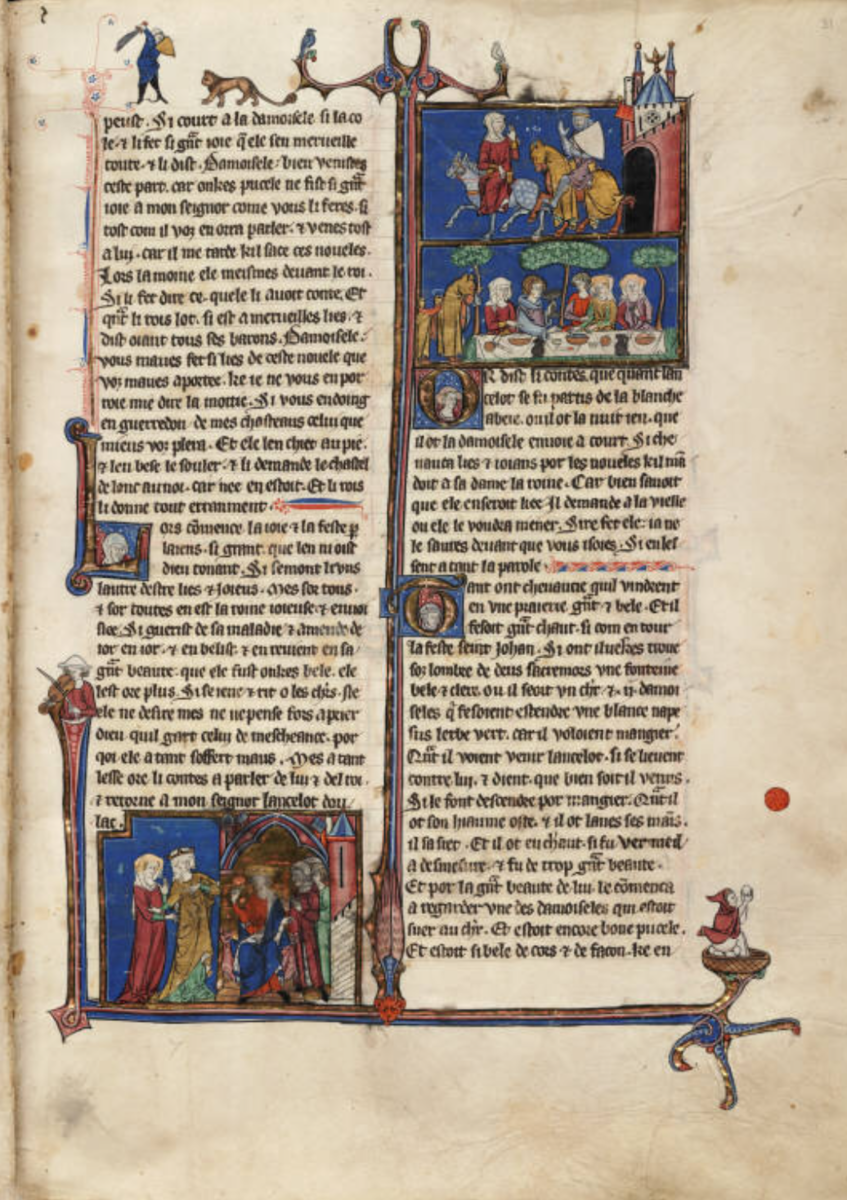 peust. Si court a la damoisele si laco
le. ⁊ li fet si gñt ioie q̃ ele sen merueille
toute. ⁊ li dist. Damoisele bien venistes
ceste part. car onkes pucele ne fist si gñt
ioie a mon seignor come vous li feres. si
tost com il voz en orra parler. ⁊ venes tost
a lui. car il me tarde kil sace ces noueles.
Lors la moine ele meismes deuant le roi.
Si li fet dire ce. quele li auoit conte. Et
qñt li rois lot. si est a merueilles lies. ⁊
dist oiant tous ses barons. Damoisele.
vous maues fet si lies de ceste nouele que
voz maues aportee. ke ie ne vous en por
roie mie dire la moitie. Si vous en doing
en guerredon de mes chasteaus celui que
mieus voz plera. Et ele len chiet au pie.
⁊ len bese le souler. ⁊ li demande le chastel
de lonc car nee en estoit. Et li rois
li donne tout erranment.
Lors cõmence la ioie ⁊ la feste p
laiens. si grant. que len ni oist
dieu tonant. Si semont li vns
lautre destre lies ⁊ ioieus. Mes sor tous.
⁊ sor toutes en est la roine ioieuse ⁊ enuoi
sie. Si guerist de sa maladie ⁊ amende de
ior en ior. ⁊ en belist. ⁊ en reuient en sa
gñt beaute. que ele fust onkes bele. ele
lest ore plus. Si se ieue ⁊ rit o les chrs. Ne
ele ne desire mes ne ne pense fors a prier
dieu quil gart celui de mescheance. por
qoi ele a tant soffert maus. Mes a tant
lesse ore li contes a parler de lui ⁊ del roi.
⁊ retorne a mon seignor lancelot dou
lac.
OR dist li contes. que quant lan
celot se fu partis de la blanche
abeie. ou il ot la nuit ieu. que
il ot la damoisele enuoie a court. Si che
uauca lies ⁊ ioians por les noueles kil mã
doit a sa dame la roine. Car bien sauoit
que ele en seroit liee. Il demande a la vielle
ou ele le voudra mener. Sire fet ele. ia ne
le saures deuant que vous isoies. Si en les
sent a tant la parole.
Tant ont cheuaucie quil vindrent
en vne praierie gñt ⁊ bele. Et il
fesoit gñt chaut. si com en tour
la feste seint Johan. Si ont iluekes troue
soz lombre de deus sicremors vne fonteine
bele ⁊ clere. ou il seoit vn chr̃ ⁊ .ij. damoi
seles q̃ fesoient estendre vne blance nape
sus lerbe vert. car il voloient mangier.
Qñt il voient venir lancelot. si se lieuent
contre lui. ⁊ dient. que bien soit il venus.
Si le font descendre por mangier. Qñt il
ot son hiaume oste. ⁊ il ot laues ses mais.
il sasiet. Et il ot eu chaut. si fu vermeil
a desmesure. ⁊ fu de trop gñt beaute.
Et por la gñt beaute de lui. le cõmenca
a regarder vne des damoiseles qui estoit
suer au chr̃. Et estoit encore bone pucele.
Et estoit si bele de cors ⁊ de facon. ke en